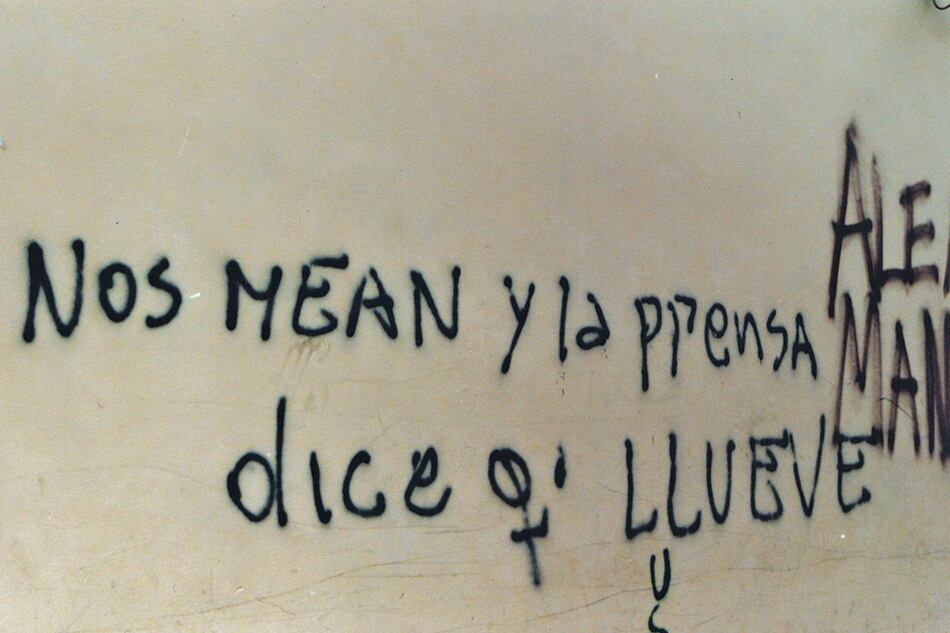 NOS MEAN y la prensa
dice q' LLUEVE
ALE
MAN